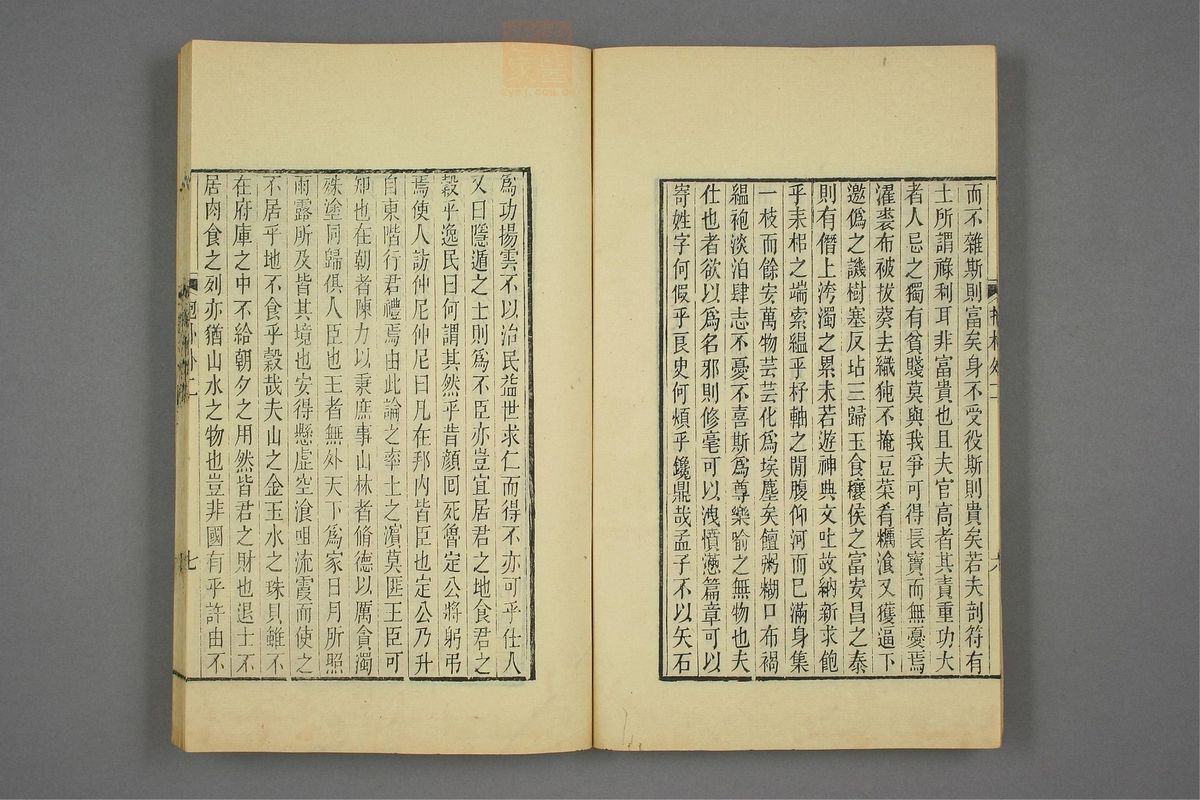 而不雜斯則富矣身不受役斯則貴矣若夫剖符有
土所謂祿利耳非富貴也且夫官高者其責重功大
者人忌之獨有貧賤莫與我爭可得長寶而無憂焉
濯裘布被拔葵去織㹠不掩豆菜肴糲湌又獲逼下
邀僞之譏樹塞反坫三歸玉食穰侯之富安昌之泰
則有僭上洿濁之累未若遊神典文吐故納新求飽
乎耒耜之端索緼乎杼軸之閒腹仰河而已滿身集
一枝而餘安萬物芸芸化爲埃塵矣饘粥糊口布褐
緼袍淡泊肆志不憂不喜斯爲尊樂喻之無物也夫
仕也者欲以爲名邪則修毫可以洩憤懣篇章可以
寄姓字何假乎良史何煩乎鑱鼎哉孟子不以矢石
爲功揚雲不以治民益世求仁而得不亦可乎仕人
又曰隱遁之士則爲不臣亦豈宜居君之地食君之
穀乎逸民曰何謂其然乎昔顔回死魯定公將躬弔
焉使人訪仲尼仲尼曰凡在邦內皆臣也定公乃升
自東階行君禮焉由此論之率土之濱莫匪王臣可
知也在朝者陳力以秉庶事山林者脩德以厲貪濁
殊塗同歸俱人臣也王者無外天下爲家日月所照
雨露所及皆其境也安得懸虛空湌咀流霞而使之
不居乎地不食乎穀哉夫山之金玉水之珠貝雖不
在府庫之中不給朝夕之用然皆君之財也退士不
居肉食之列亦猶山水之物也豈非國有乎許由不
七